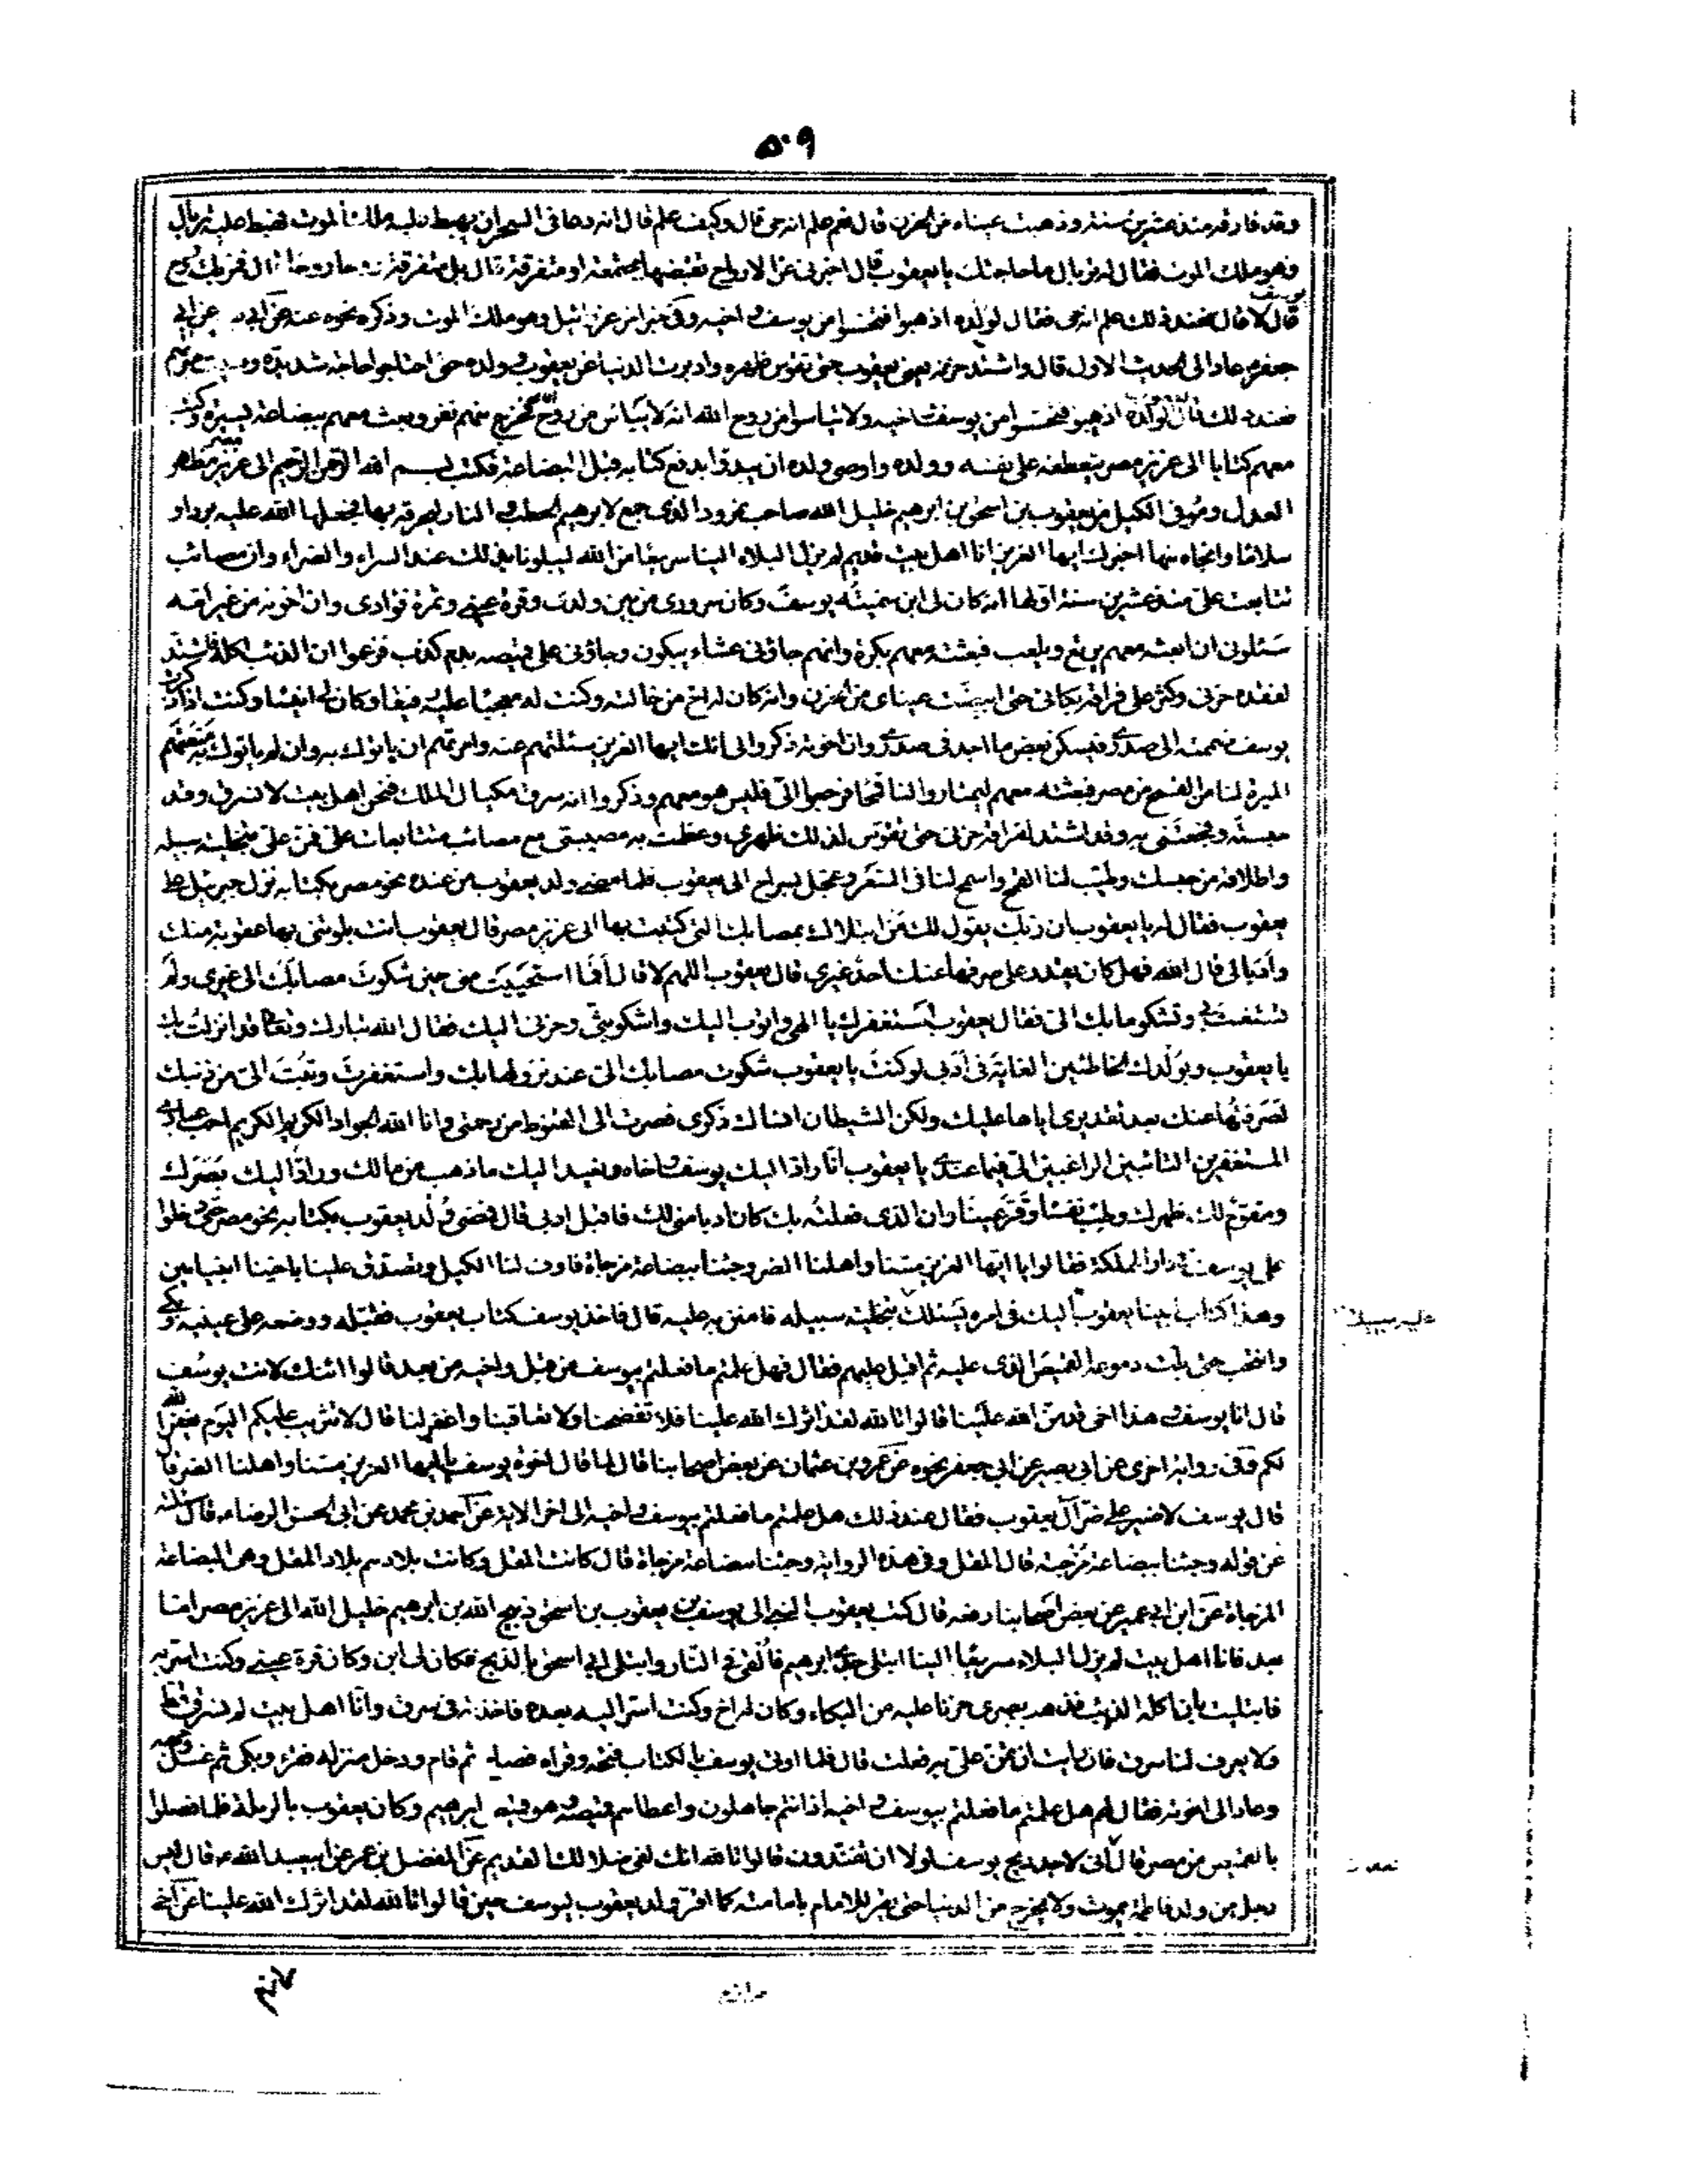 ٥٠٩
وقد فارقه منذ عشرين سنة وذهبت عيناه من الحزن قال نعم علم انه حي قال وكيف علم قال انه دعا في السحر ان يهبط عليه ملك الموت فهبط عليه تربال
وهو ملك الموت فقال له تربال ما حاجتك يا يعقوب قال اخبرني عن الارواح تقبضها مجتمعة او متفرقة قال بل متفرقة روحا روحا قال فمر بك روح
يوسف
قال لا قال فعند ذلك علم انه حي فقال لولده اذهبوا فتحسسوا من يوسف واخيه وفي خبر اخر عزرائيل وهو ملك الموت وذكر نحوه عنه عن ابي
جعفر عاد الى الحديث الاول قال واشتد حزنه يعني يعقوب حتى تقوس ظهره وادبرت الدنيا عن يعقوب وولده حتى احتاجوا حاجة شديدة وفنيت ميرتهم
فعند ذلك قال لولده اذهبوا فتحسسوا من يوسف واخيه ولا تياسوا من روح الله انه لا ييأس من روح الله فخرج منهم نفر وبعث معهم ببضاعة يسيرة وكتب
معهم كتابا الى عزيز مصر يتعطفه على نفسه وولده واوصى ولده ان يبدؤا بدفع كتابه قبل البضاعة فكتب بسم الله الرحمن الرحيم الى عزيز مصر ومظهر
العدل وموفي الكيل من يعقوب بن اسحق بن ابرهيم خليل الله صاحب نمرود الذي جمع لابرهيم الحطب والنار ليحرقه بها فجعلها الله عليه بردا و
سلاما وانجاه منها اخبرك ايها العزيز انا اهل بيت قديم لم يزل البلاء الينا سريعا من الله ليبلونا بذلك عند السراء والضراء وان مصائب
تتابعت علي منذ عشرين سنة اولها انه كان لي ابن سميته يوسف وكان سروري من بين ولدي وقرة عيني وثمرة فؤادي وان اخوته من غير امه
سئلوني ان ابعثه معهم يرتع ويلعب فبعثته معهم بكرة وانهم جاؤني عشاء يبكون وجاؤني على قميصه بدم كذب فزعموا ان الذئب اكله فاشتد
لفقده حزني وكثر على فراقه بكائي حتى ابيضت عيناي من الحزن وانه كان له اخ من خالته وكنت له معجبا وعليه رفيقا وكان لي انيسا وكنت اذا ذكرت
يوسف ضممته الى صدري فيسكن بعض ما اجد في صدري وان اخوته ذكروا لي انك ايها العزيز سئلتهم عنه وامرتهم ان ياتوك به وان لم ياتوك به منعتهم
الميرة لنا من القمح من مصر فبعثته معهم ليمتاروا لنا قمحا فرجعوا الي فليس هو معهم وذكروا انه سرق مكيال الملك ونحن اهل بيت لا نسرق وقد
حبسته وفجعتني به وقد اشتد لفراقه حزني حتى تقوس لذلك ظهري وعظمت به مصيبتي مع مصائب متتابعات علي فمن علي بتخلية سبيله
واطلاقه من حبسك وطيب لنا القمح واسمح لنا في السعر وعجل بسراح آل يعقوب فلما مضى ولد يعقوب من عنده نحو مصر بكتابه نزل جبرئيل على
يعقوب فقال له يا يعقوب ان ربك يقول لك من ابتلاك بمصائبك التي كتبت بها الى عزيز مصر قال يعقوب انت بلوتني بها عقوبة منك
وادبا لي قال الله فهل كان يقدر على صرفها عنك احد غيري قال يعقوب اللهم لا قال افما استحييت مني حين شكوت مصائبك الى غيري ولم
تستغث بي وتشكو ما بك الي فقال يعقوب استغفرك يا الهي واتوب اليك واشكو بثي وحزني اليك فقال الله تبارك وتعالى قد انزلت بك
يا يعقوب وبولدك الخاطئين الغاية في ادبي ولو كنت يا يعقوب شكوت مصائبك الي عند نزولها بك واستغفرت وتبت الي من ذنبك
لصرفتها عنك بعد تقديري اياها عليك ولكن الشيطان انساك ذكري فصرت الى القنوط من رحمتي وانا الله الجواد الكريم احب عبادي
المستغفرين التائبين الراغبين الي فيما عندي يا يعقوب انا راد اليك يوسف واخاه ومعيد اليك ما ذهب من مالك وراد اليك بصرك
ومقوم لك ظهرك وطب نفسا وقر عينا وان الذي فعلته بك كان ادبا مني لك فاقبل ادبي قال ومضى ولد يعقوب بكتابه نحو مصر حتى دخلوا
على يوسف في دار المملكة فقالوا يا ايها العزيز مسنا واهلنا الضر وجئنا ببضاعة مزجاة فاوف لنا الكيل وتصدق علينا باخينا ابن يامين
وهذا كتاب ابينا يعقوب اليك في امره يسئلك تخلية سبيله فامنن به عليه قال فاخذ يوسف كتاب يعقوب فقبله ووضعه على عينيه وبكى
وانتحب حتى بلت دموعه القميص الذي عليه ثم اقبل عليهم فقال هل علمتم ما فعلتم بيوسف من قبل واخيه من بعد قالوا ائنك لانت يوسف
قال انا يوسف وهذا اخي قد من الله علينا قالوا تالله لقد اثرك الله علينا فلا تفضحنا ولا تعاقبنا واغفر لنا قال لا تثريب عليكم اليوم يغفر الله
لكم وفي رواية اخرى عن ابي بصير عن ابي جعفر نحوه عن عمرو بن عثمان عن بعض اصحابنا قال لما قال اخوة يوسف يا ايها العزيز مسنا واهلنا الضر قال
قال يوسف لا صبر على ضر آل يعقوب فقال عند ذلك هل علمتم ما فعلتم بيوسف واخيه الى اخر الاية عن احمد بن محمد عن ابي الحسن الرضاء قال سئلته
عن قوله وجئنا ببضاعة مزجية قال المقل وفي هذه الرواية وجئنا ببضاعة مزجاة قال كانت المقل وكانت بلادهم بلاد المقل وهي البضاعة
المزجاة عن ابن ابي عمير عن بعض اصحابنا رفعه قال كتب يعقوب النبي الى يوسف من يعقوب بن اسحق ذبيح الله بن ابرهيم خليل الله الى عزيز مصر اما
بعد فانا اهل بيت لم يزل البلاء سريعا الينا ابتلي جدي ابرهيم فالقي في النار وابتلي ابي اسحق بالذبح فكان لي ابن وكان قرة عيني وكنت اسر به
فابتليت بان اكله الذئب فذهب بصري حزنا عليه من البكاء وكان له اخ وكنت اسر اليه بعده فاخذته في سرق وانا اهل بيت لم نسرق قط
ولا يعرف لنا سرق فان رايت ان تمن علي به فعلت قال فلما اوتي يوسف بالكتاب فتحه وقراه فصاح ثم قام ودخل منزله فقرء وبكى ثم غسل وجهه
وعاد الى اخوته فقال لهم هل علمتم ما فعلتم بيوسف واخيه اذ انتم جاهلون واعطاهم قميصه وهو قميص ابرهيم وكان يعقوب بالرملة فلما فصلوا
بالقميص من مصر قال اني لاجد ريح يوسف لولا ان تفندون قالوا تالله انك لفي ضلالك القديم عن المفضل بن عمر عن ابي عبد الله قال ليس
رجل من ولد فاطمة يموت ولا يخرج من الدنيا حتى يقر للامام بامامته كما اقر ولد يعقوب ليوسف حين قالوا تالله لقد اثرك الله علينا عن اخي